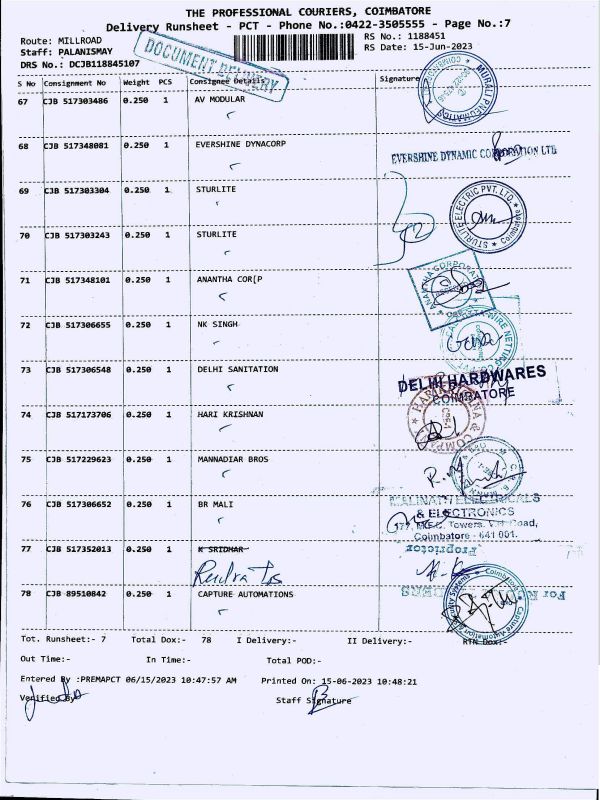 THE PROFESSIONAL COURIERS, COIMBATORE
Delivery Runsheet - PCT - Phone No.:0422-3505555 - Page No.:7
Route: MILLROAD
RS No.: 1188451
Staff: PALANISMAY
RS Date: 15-Jun-2023
DRS No.: DCJB118845107
DOCUMENT DELIVERY
S No Consignment No Weight PCS Consignee Details Signature
67 CJB 517303486 0.250 1 AV MODULAR
68 CJB 517348081 0.250 1 EVERSHINE DYNACORP
EVERSHINE DYNAMIC CORPORATION LTD
69 CJB 517303304 0.250 1 STURLITE
STURLITE ELECTRIC PVT. LTD. Coimbatore
70 CJB 517303243 0.250 1 STURLITE
71 CJB 517348101 0.250 1 ANANTHA COR[P
72 CJB 517306655 0.250 1 NK SINGH
73 CJB 517306548 0.250 1 DELHI SANITATION
DELHI HARDWARES
COIMBATORE
74 CJB 517173706 1 HARI KRISHNAN
0.250
75 CJB 517229623 0.250 1 MANNADIAR BROS
76 CJB 517306652 0.250 1 BR MALI
& ELECTRONICS
Coimbatore - 641 001.
77 CJB 517352013 0.250 1 K SRIDHAR
Proprietor
78 CJB 89510842 0.250 1 CAPTURE AUTOMATIONS
Tot. Runsheet:- 7 Total Dox:- 78 I Delivery:- II Delivery:- RTN Dox:-
Out Time:- In Time:- Total POD:-
Entered By :PREMAPCT 06/15/2023 10:47:57 AM Printed On: 15-06-2023 10:48:21
Verified By
Staff Signature